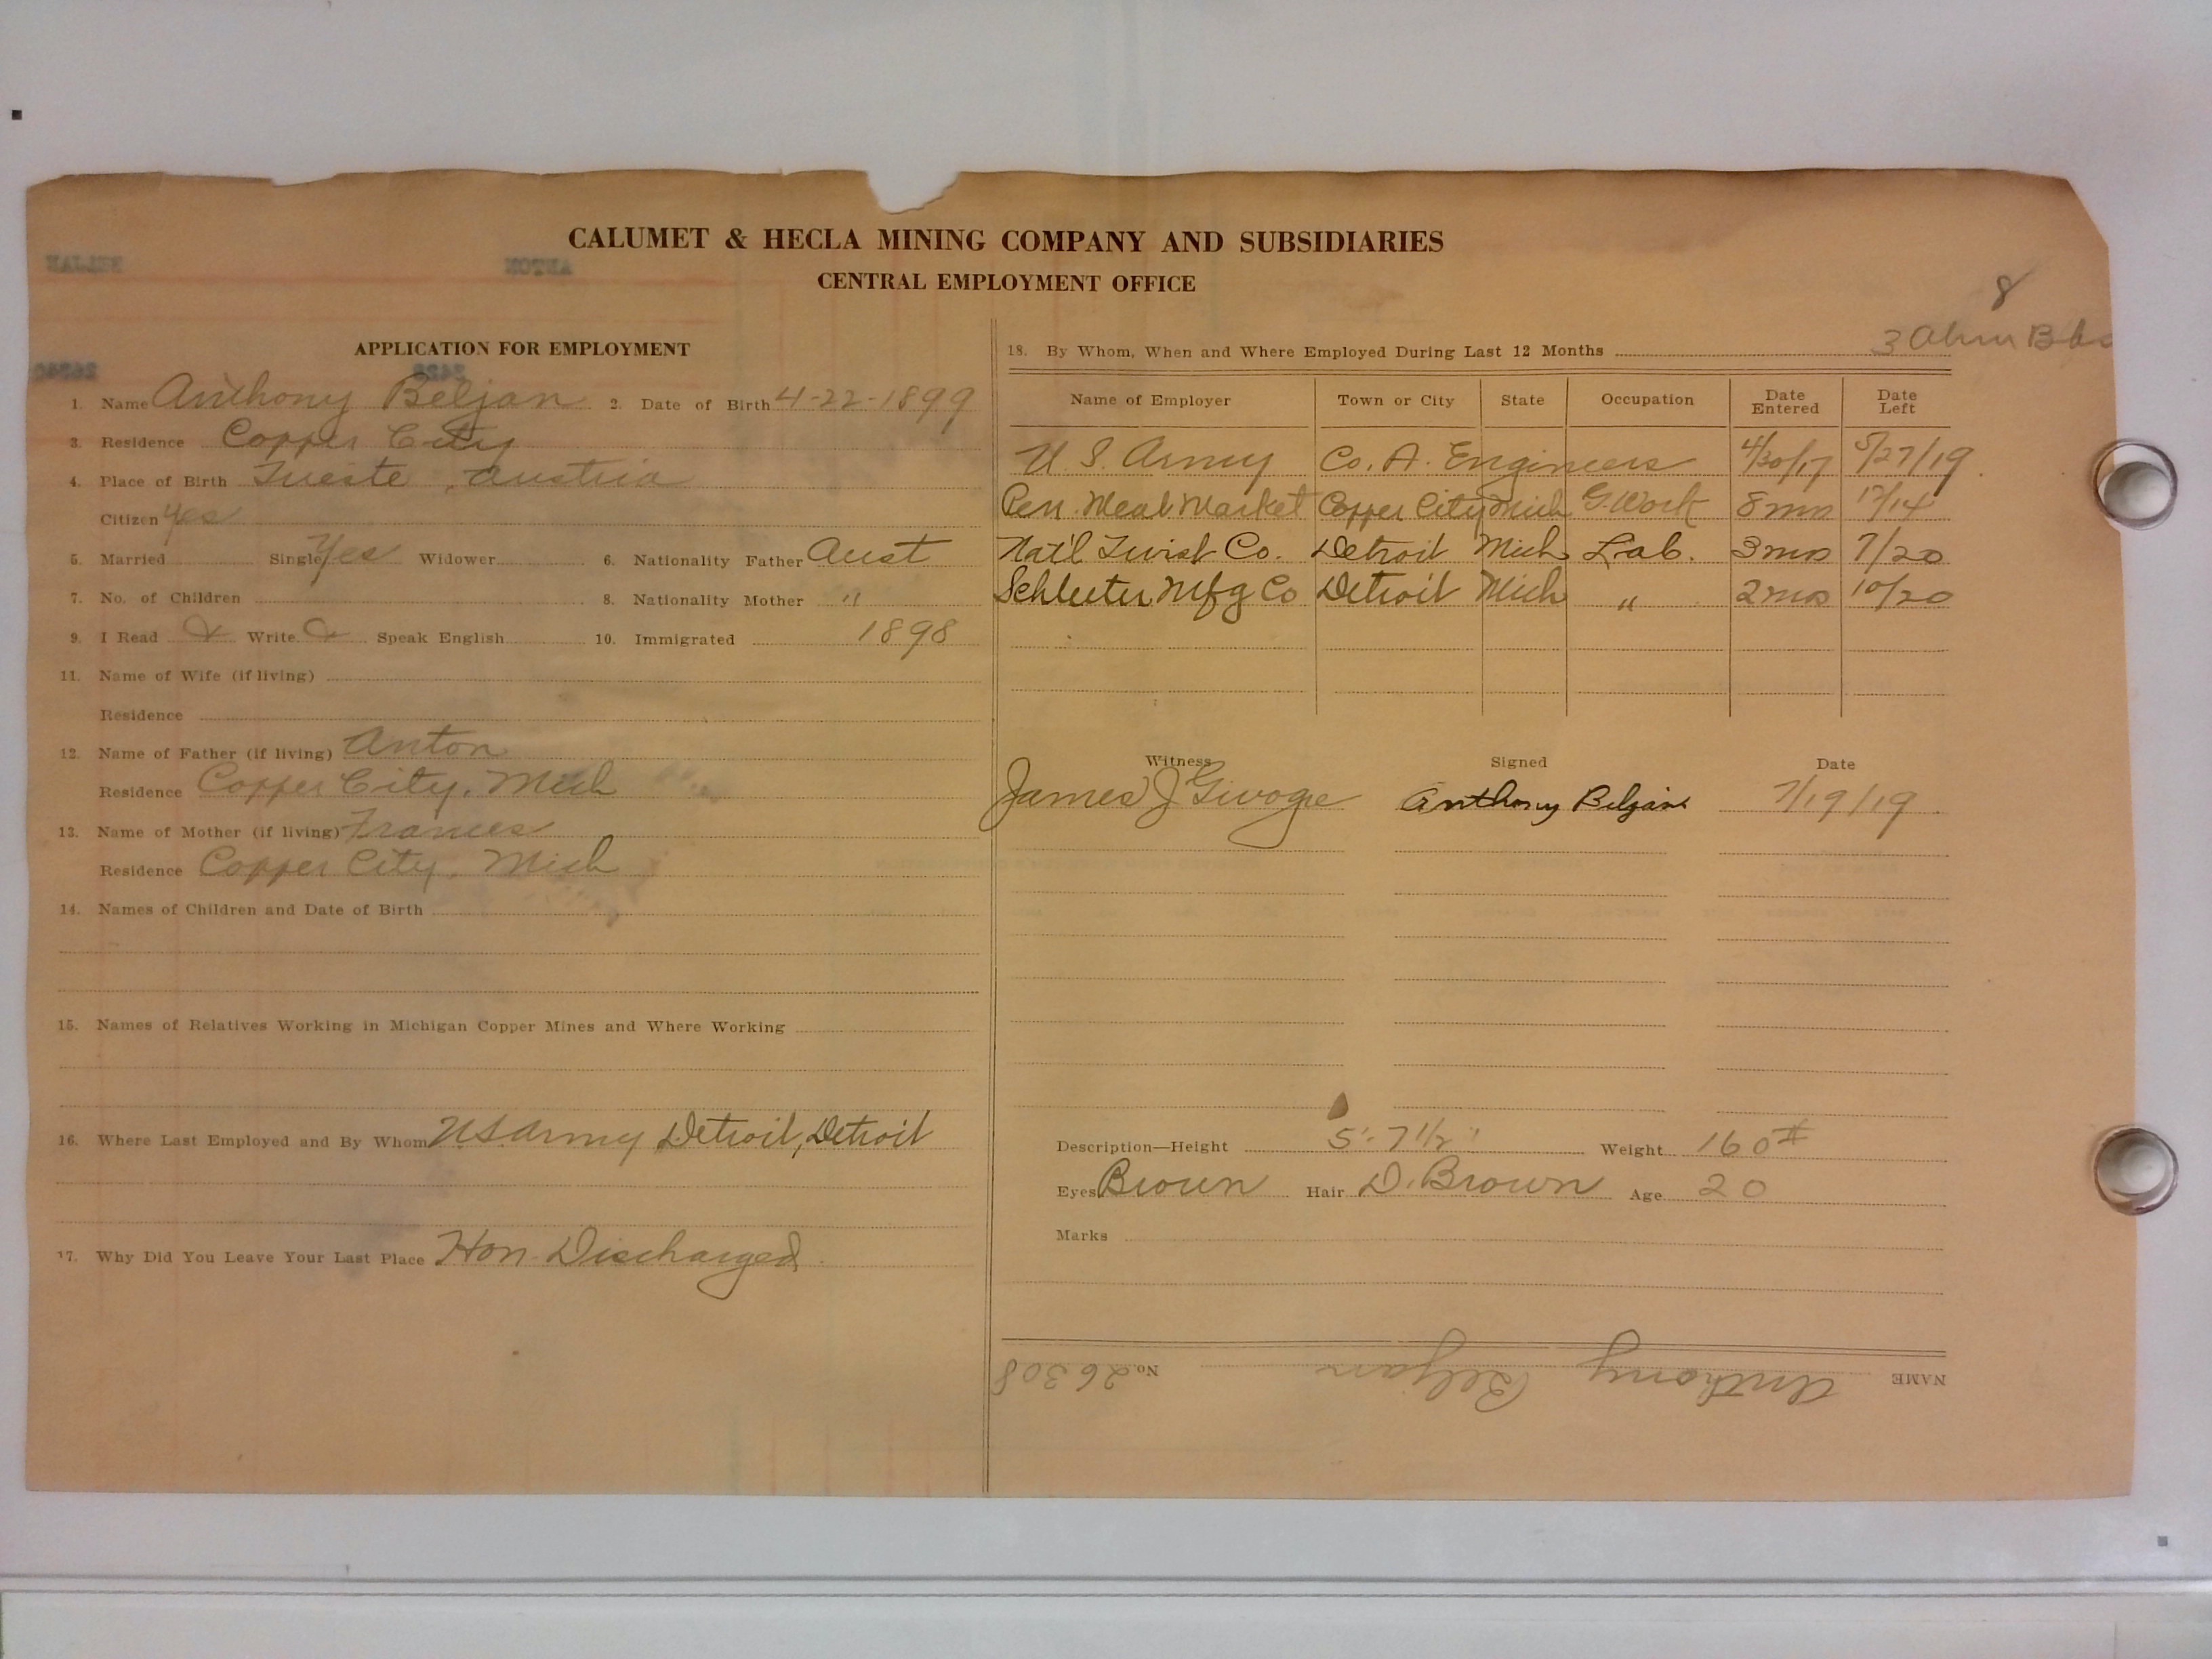 CALUMET & HECLA MINING COMPANY AND SUBSIDIARIES
CENTRAL EMPLOYMENT OFFICE
8
3 B
APPLICATION FOR EMPLOYMENT
1. Name Anthony Beljan 2. Date of Birth 4-22-1899
3. Residence Copper City
4. Place of Birth Trieste, Austria
Citizen yes
5. Married Single Yes Widower 6. Nationality Father Aust
7. No. of Children 8. Nationality Mother "
9. I Read Write Speak English 10. Immigrated 1898
11. Name of Wife (if living)
Residence
12. Name of Father (if living) Anton
Residence Copper City, Mich
13. Name of Mother (if living) Frances
Residence Copper City, Mich
14. Names of Children and Date of Birth
15. Names of Relatives Working in Michigan Copper Mines and Where Working
16. Where Last Employed and By Whom U S Army Detroit, Detroit
17. Why Did You Leave Your Last Place Hon Discharged
18. By Whom, When and Where Employed During Last 12 Months
Name of Employer Town or City State Occupation Date Entered Date Left
U. S. Army Co. A. Engineers 4/30/17 5/27/19
Pen. Meat Market Copper City Mich G. Work 8 mo 12/14
Nat'l Twist Co. Detroit Mich Lab. 3 mo 7/20
Schleeter Mfg Co Detroit Mich " 2 mo 10/20
Witness Signed Date
James J Anthony Beljan 7/19/19
Description—Height 5'-7 1/2" Weight 160 #
Eyes Brown Hair D. Brown Age 20
Marks
NAME Anthony Beljan No. 26308